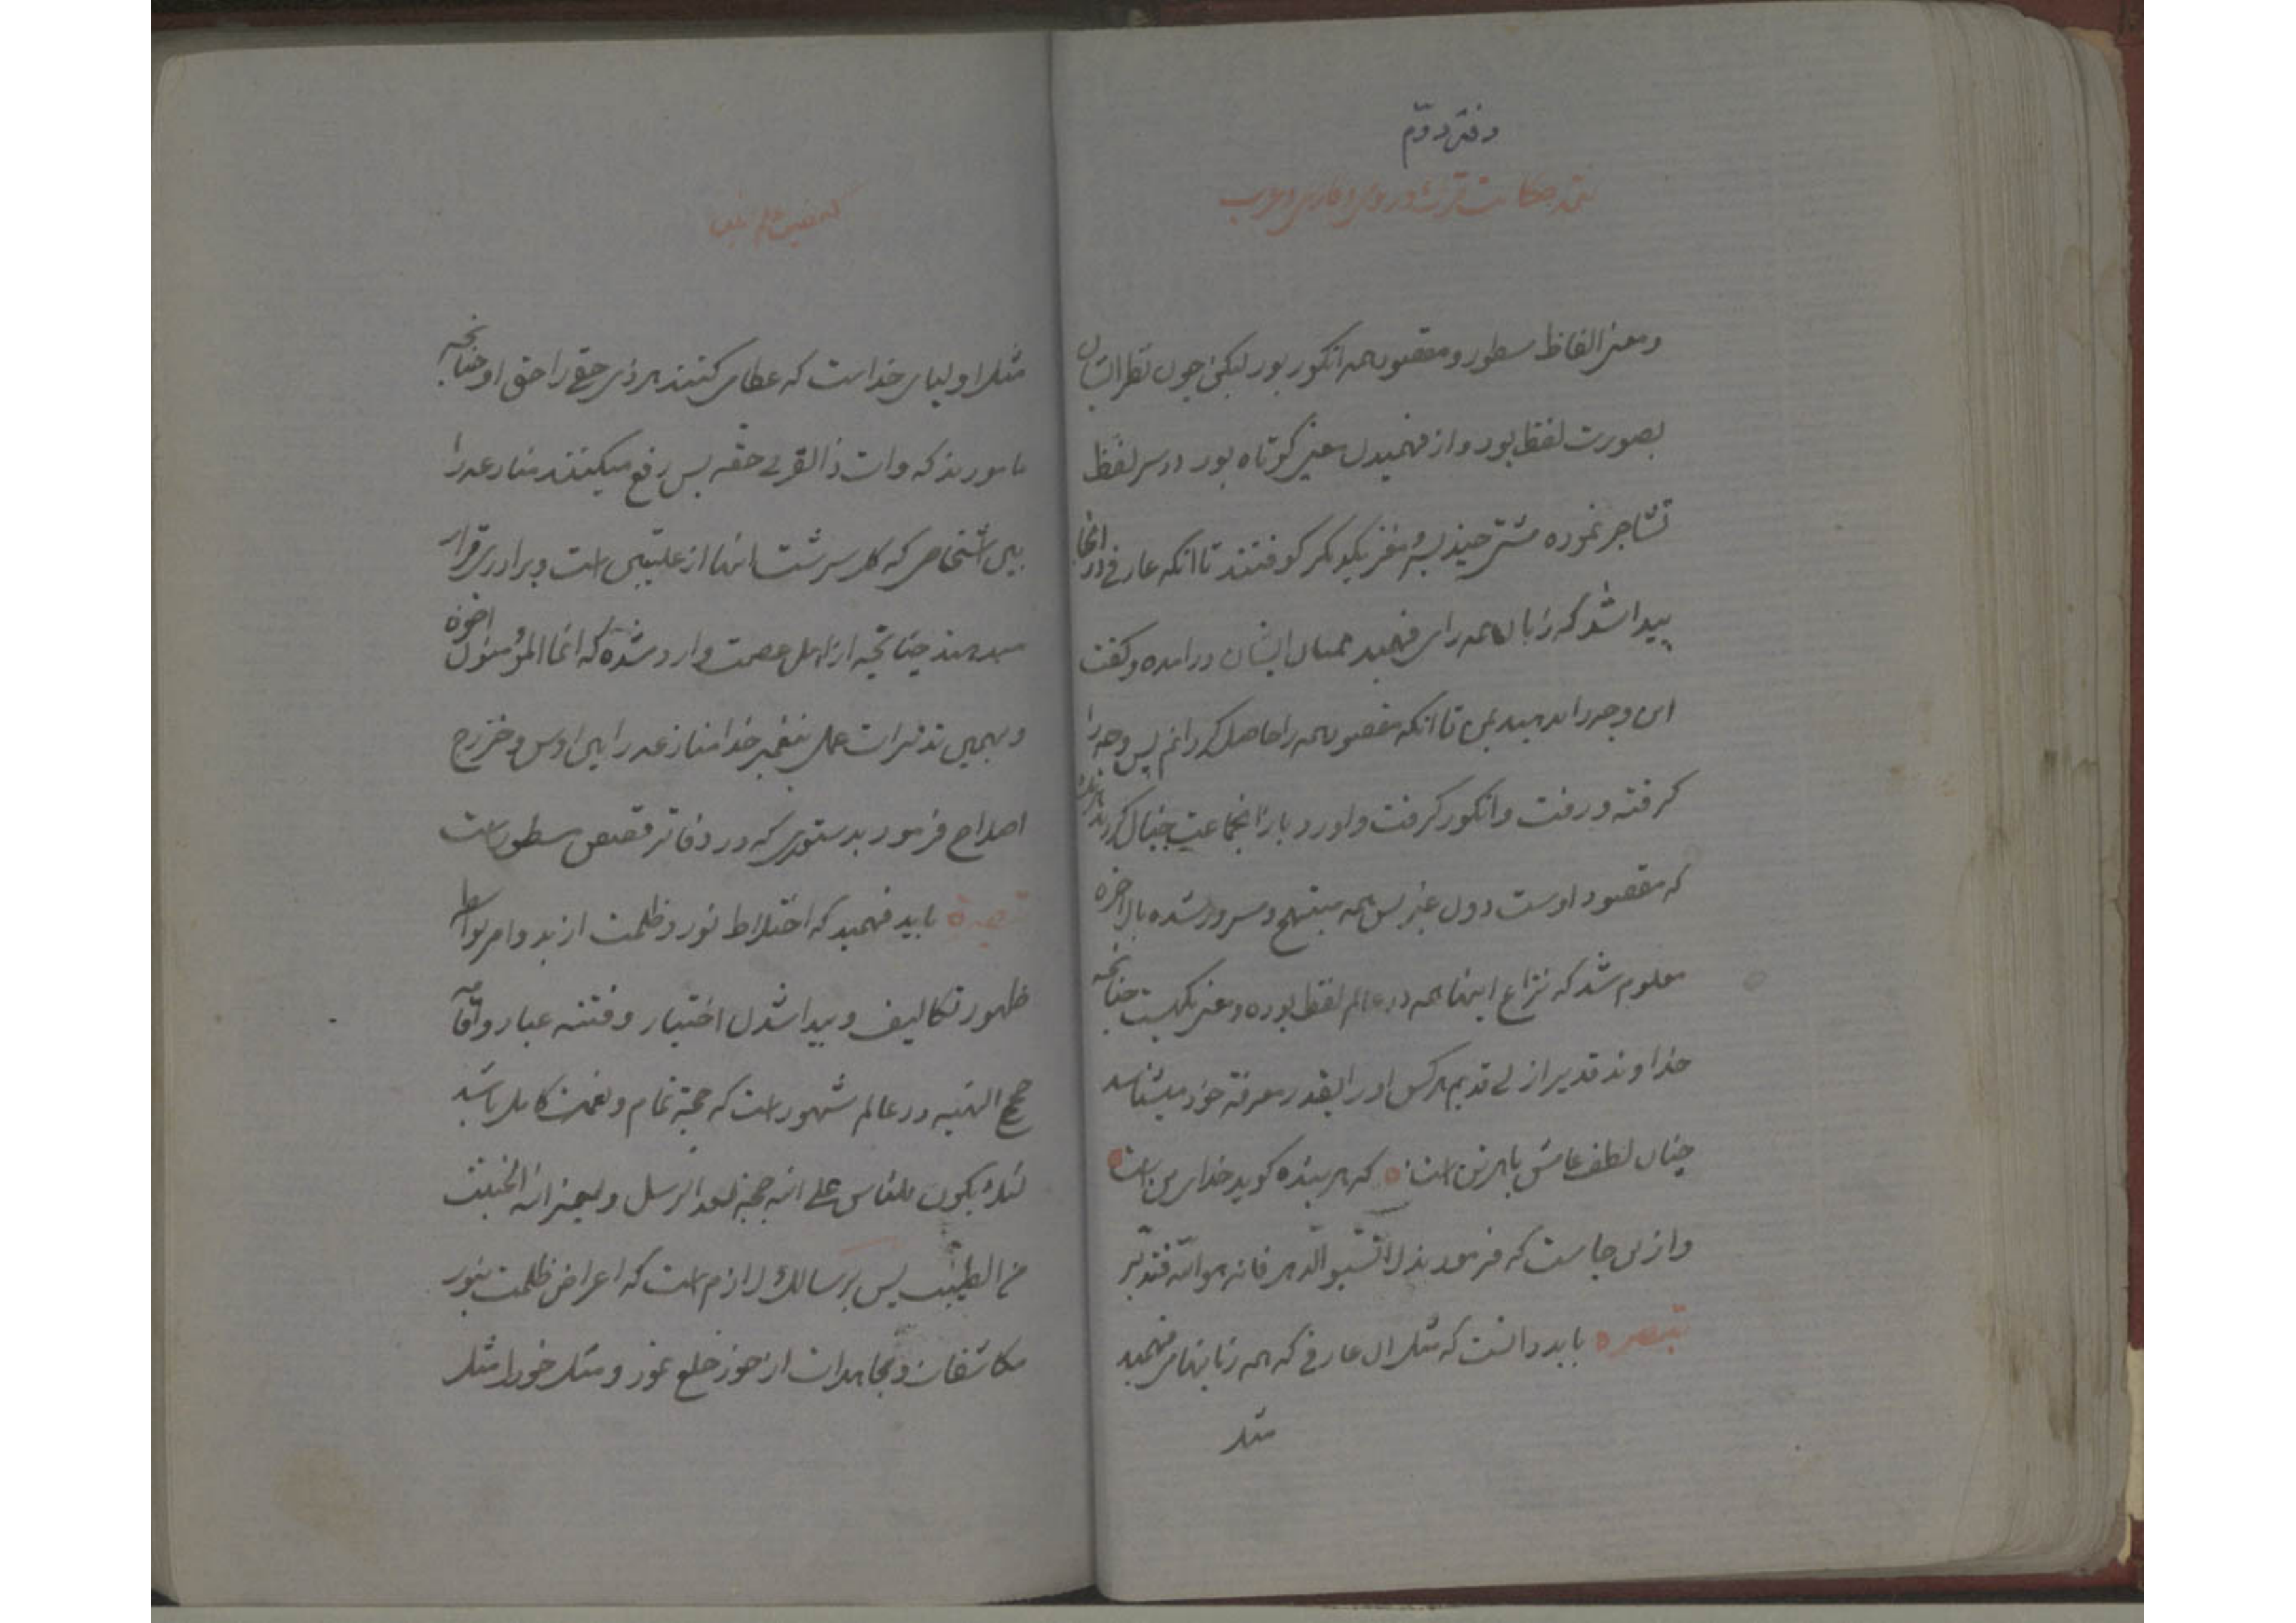 دفتر دوّم
تتمه حکایت ترک و رومی و فارسی و عرب
ومعنی الفاظ مسطور ومقصود همه انکور بود لیکن چون نظر ایشان
بصورت لفظ بود و از فهمیدن معنی کوتاه بود در سر لفظ
تشاجر نموده مشتی چند بر مغز یکدیکر کوفتند تا آنکه عارفی در آنجا
پیدا شد که زبان همه را می فهمید بمیان ایشان درآمده و کفت
این وجه را بدهید بمن تا آنکه مقصود همه را حاصل کردانم پس وجه را
کرفته و رفت و انکور کرفت و اورد باز آنجماعت خیال کردند
که مقصود اوست دون غیر پس همه مبتهج و مسرور شده بالاخره
معلوم شد که نزاع اینها همه در عالم لفظ بوده و معنی یکیست چنانچه
خداوند قدیر ازلی قدیم هرکس او را بقدر معرفة خود میشناسد
چنان لطف عامش باهر تن است که هر بنده کوید خدای من است
و از این جاست که فرمودند لا تسبّوا الدهر فانه هو الله فتدبّر
تبصره باید دانست که مثل آن عارفی که همه زبانها می فهمید
مثل
مثل اولیای خداست که عطا می کنند هر ذی حقی را حق او چنانچه
مامورند که وات ذا القربی حقه پس رفع میکنند منازعه را
بین اشخاصی که کل سرشت آنها از علیین است و برادری قرار
میدهند چنانچه از اهل عصمت وارد شده که انما المؤمنون اخوة
و بهمین تدبیرات عملی پیغمبر خدا منازعه را بین اوس و خزرج
اصلاح فرمود بدستوری که در دفاتر قصص مسطور است
باید فهمید که اختلاط نور و ظلمت از بدو امر بواسطه
ظهور تکالیف و پیدا شدن اختیار و فتنه عباد و اقامه
حجج الهیه در عالم شهود است که حجة تمام و نعمت کامل باشد
لئلا یکون للناس علی الله حجة بعد الرسل و لیمیز الله الخبیث
من الطیّب پس بر سالک لازم است که اعراض ظلمت بنور
مکاشفات و مجاهدات از خود خلع نمود و مثل خود را مثل